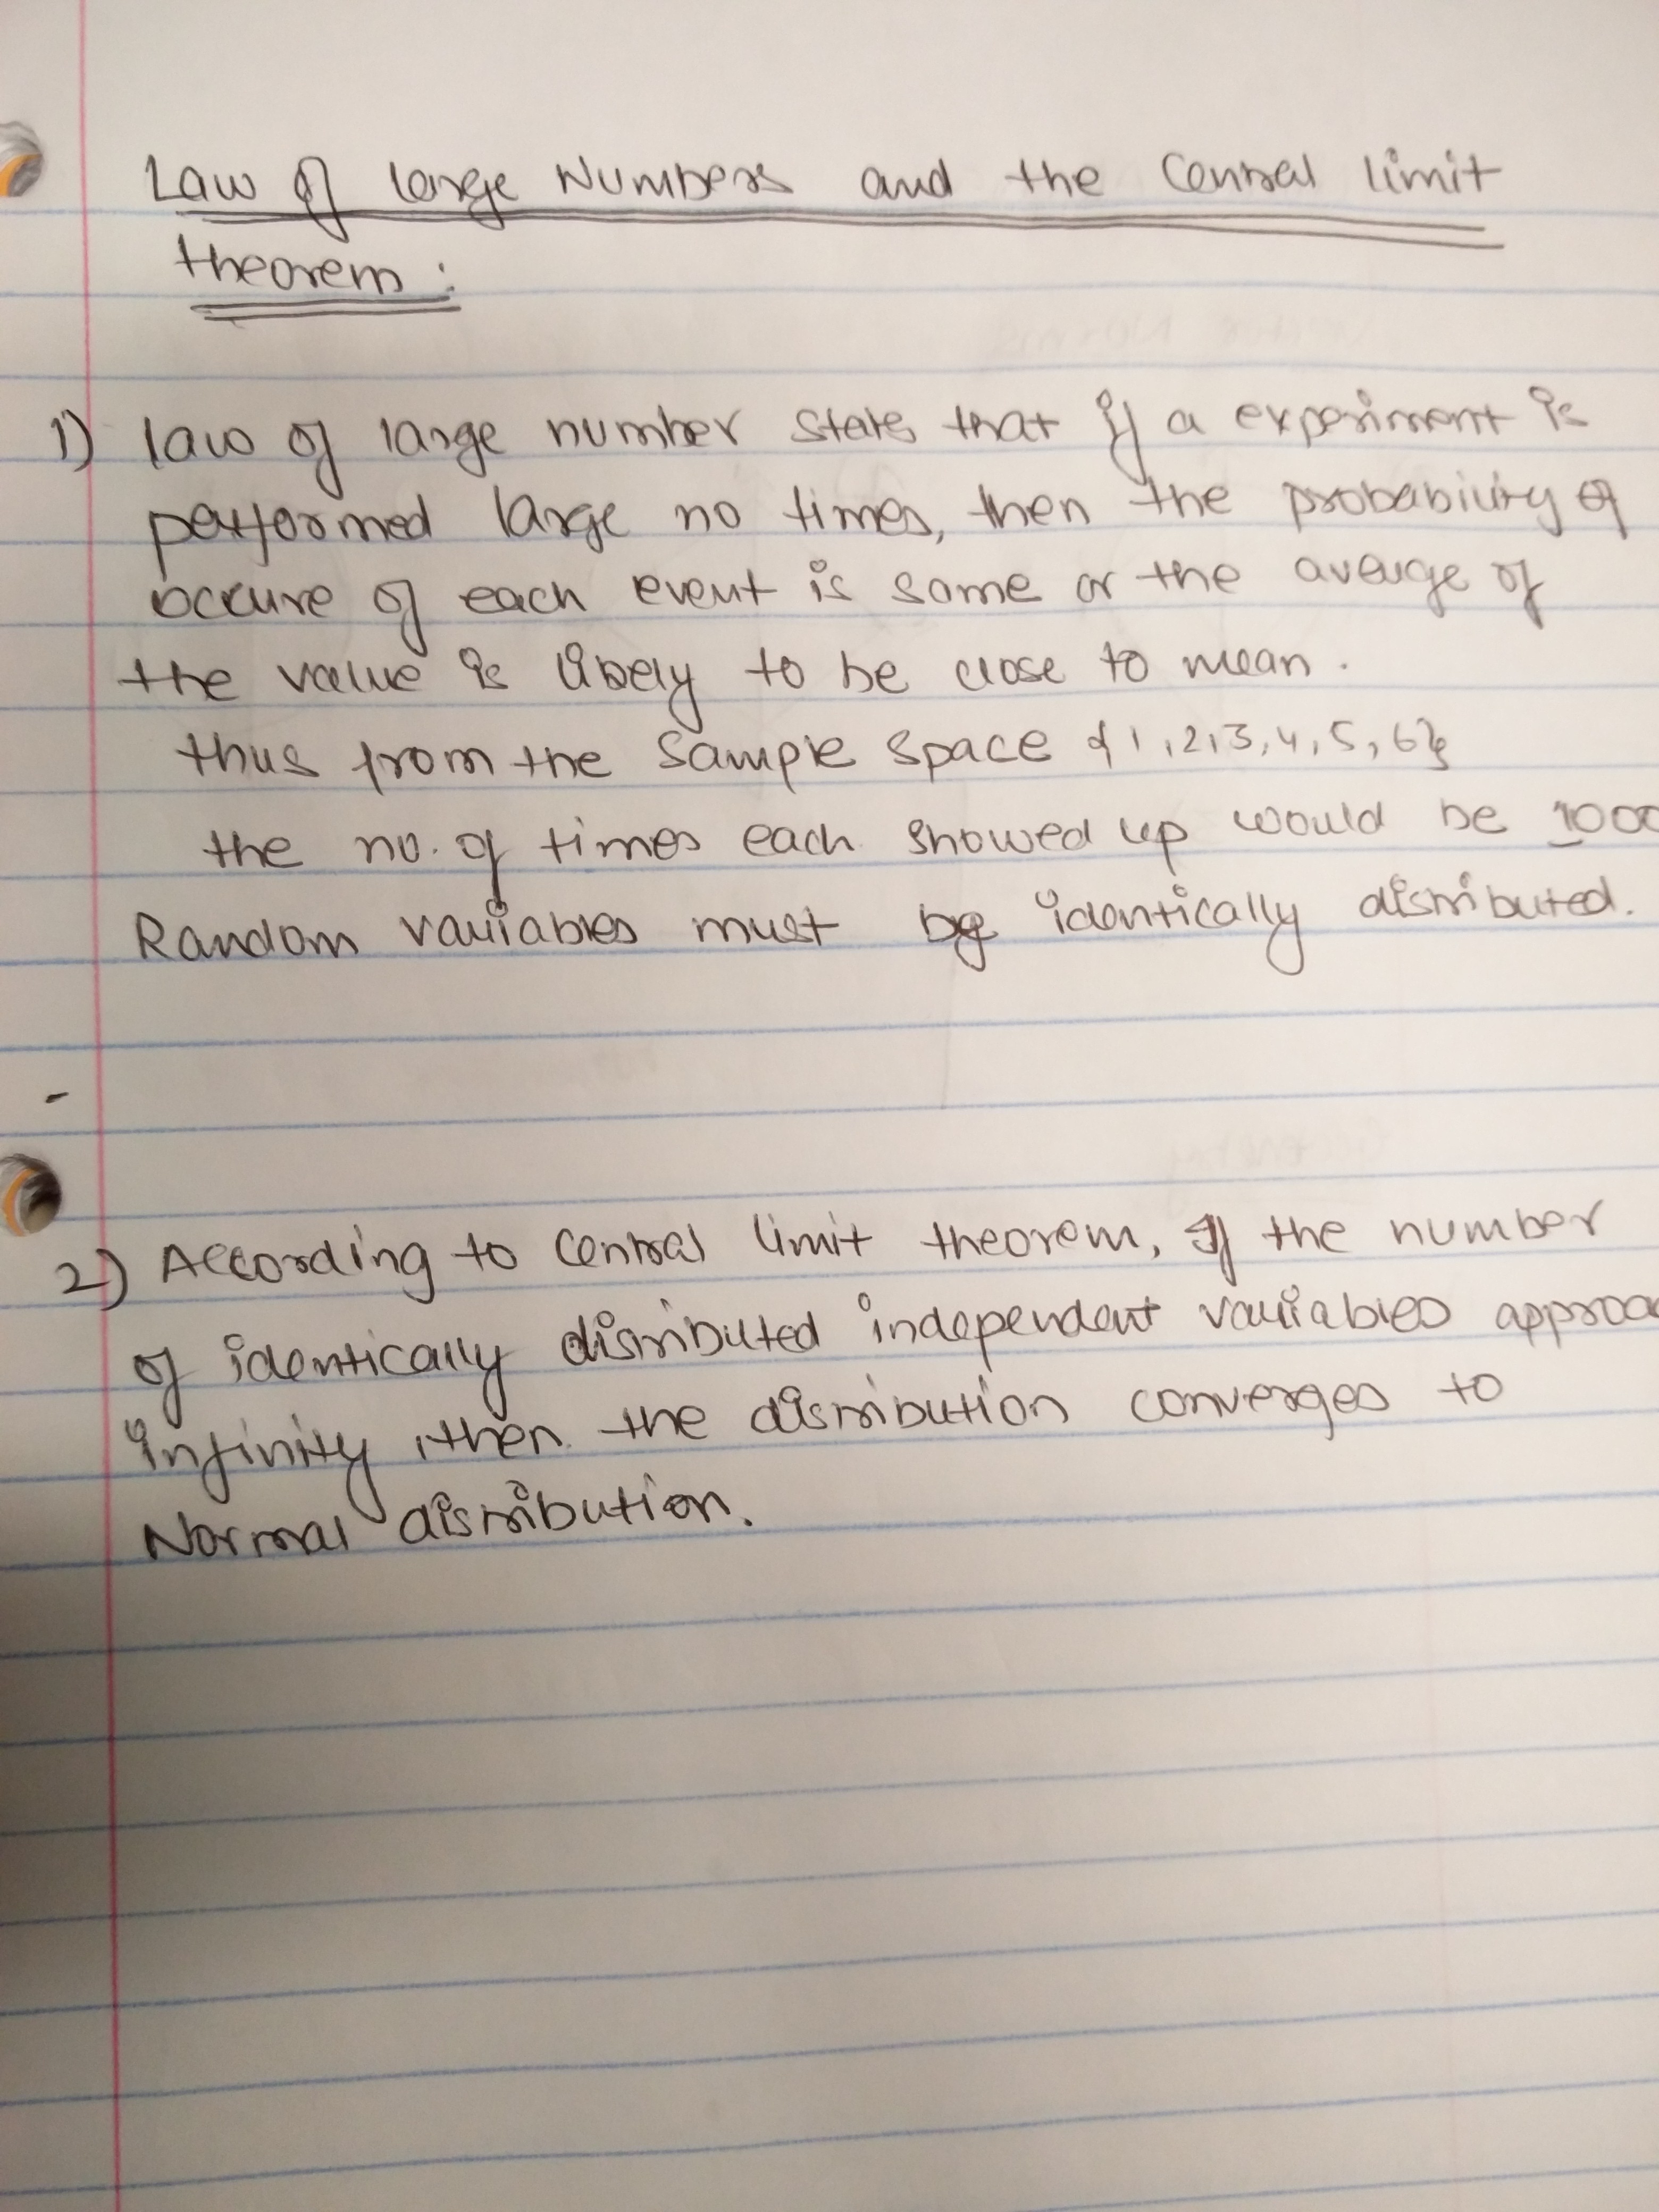 Law of large Numbers and the Central limit
theorem :
1) law of large number states that if a experiment is
performed large no times, then the probability of
occure of each event is same or the average of
the value is likely to be close to mean.
thus from the sample space {1,2,3,4,5,6}
the no. of times each showed up would be 1000
Random variables must be identically distributed.
2) According to Central limit theorem, If the number
of identically distributed independent variables approa
infinity, then the distribution converges to
Normal distribution.